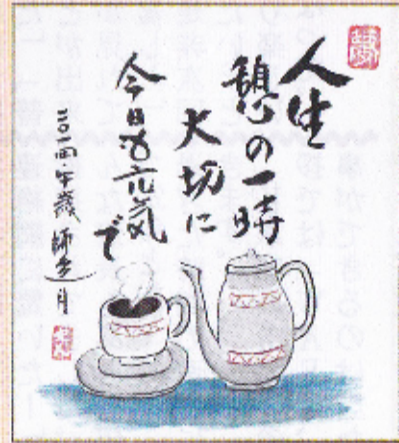 人生
憩の一時
大切に
今日も元気
で
二〇一四・午歳 師走 月